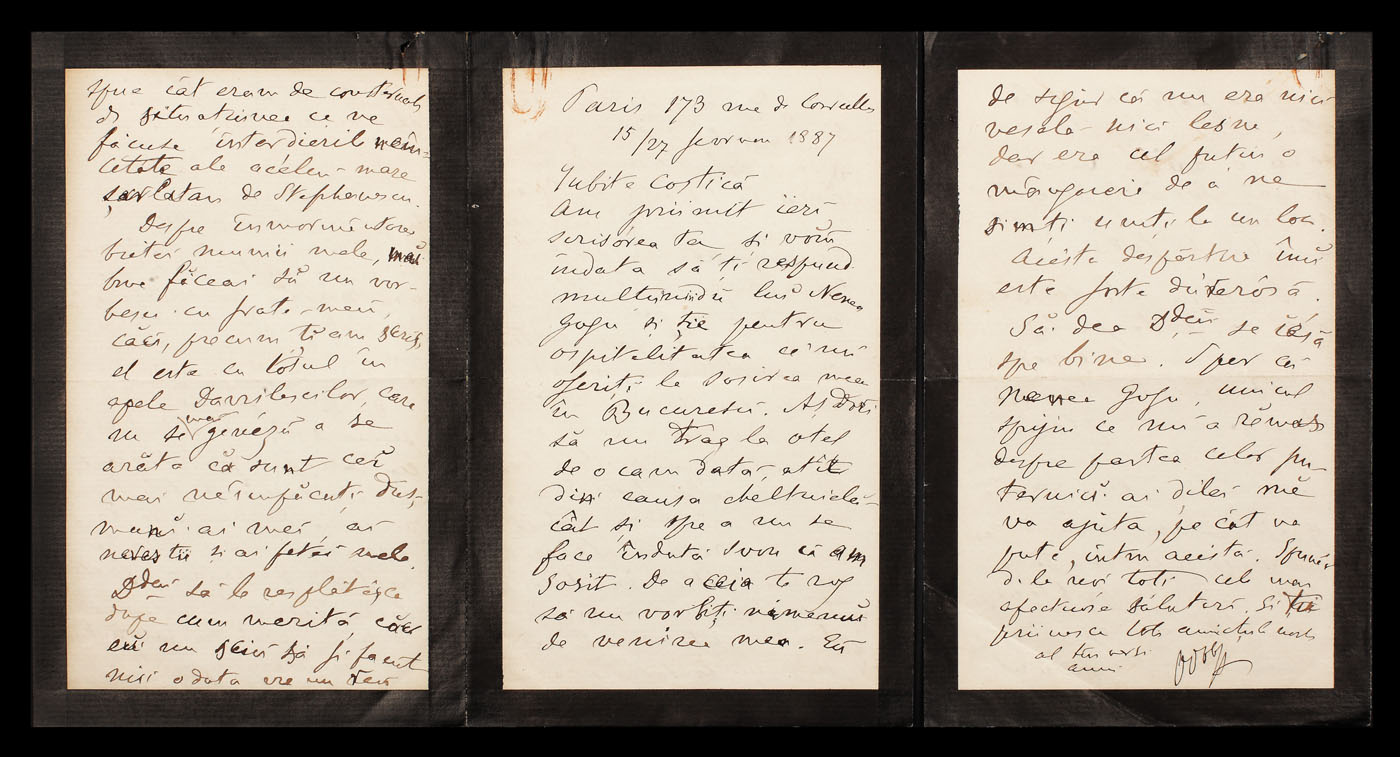 Paris 173 rue de Courcelles
15/27 Fevruar 1887
Iubite Costică
Am priimit ierĭ,
scrisórea ta și voiŭ
îndata să'țĭ respund
multumindŭ luĭ Nenea
Gogu și ție pentru
ospitalitatea ce'mĭ
oferițĭ la sosirea mea
în Bucurestĭ. Ași Dori
să nu trag la otel
de o cam data, atît
din causa cheltuielĭ-
cât și spe a nu se
face îndată svon că am
sosit. De aceia te rog
să nu vorbițĭ nimenuĭ
de venirea mea. Eŭ
spue cât eram de consternați
de situatiunea ce ne
făcuse interdicerile neîn-
cetate ale acelui mare
șarlatan de Stephanescu.
Despre înmormêntarea
bietei mumii mele, maĭ
bine făceai să nu vor-
besci cu frate-meŭ,
căci, precum ți am scris,
el este cu totul în
apele Davrilescilor, care
nu se mai genéză a se
arăta că sunt ceĭ
mai neîmpăcați duș-
manĭ ai mei, ai
nevestiĭ și ai feteĭ mele.
Ddeŭ să le resplătésca
dupe cum merită, căci
eŭ nu sciŭ să fi facut
nici o data vre un rĕŭ
de sigur că nu era nici
vesela nici lesne,
dar era cel putin o
mângaiere de a ne
simți uniți la un loc.
Acésta despărțire îmĭ
este forte durerósă.
Să dea Ddeŭ se iésă
spe bine. Sper că
nenea Gogu, unicul
sprijin ce mĭ a rĕmas
despre partea celor pu-
ternicĭ ai dileĭ mĕ
va ajuta, pe cât va
pute, întru acésta. Spune
de la noi toți cele mai
afectuóse salutărĭ. Si tu
priimesce tote amicițiile nostre
al teu vechi
amic